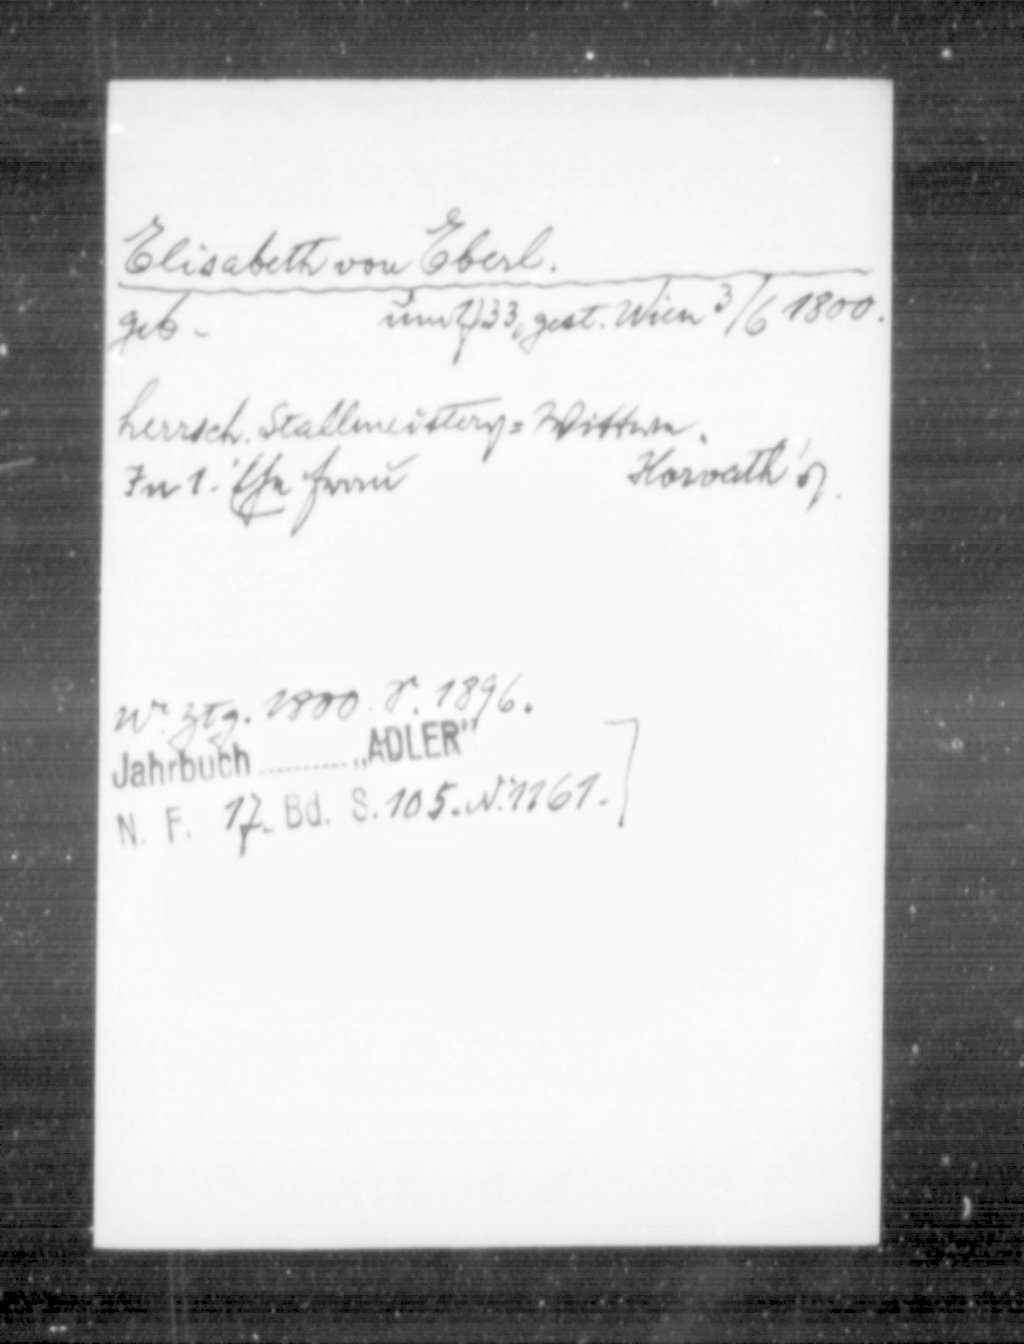 Elisabeth von Eberl.
geb. um 1733, gest. Wien 3/6 1800.
herrsch. Stallmeisters= Wittwe.
In 1. Ehe Frau Horvath
W. Ztg. 1800 S. 1896.
Jahrbuch .......... „ADLER"
N. F. 17. Bd. S. 105. N. 1161.